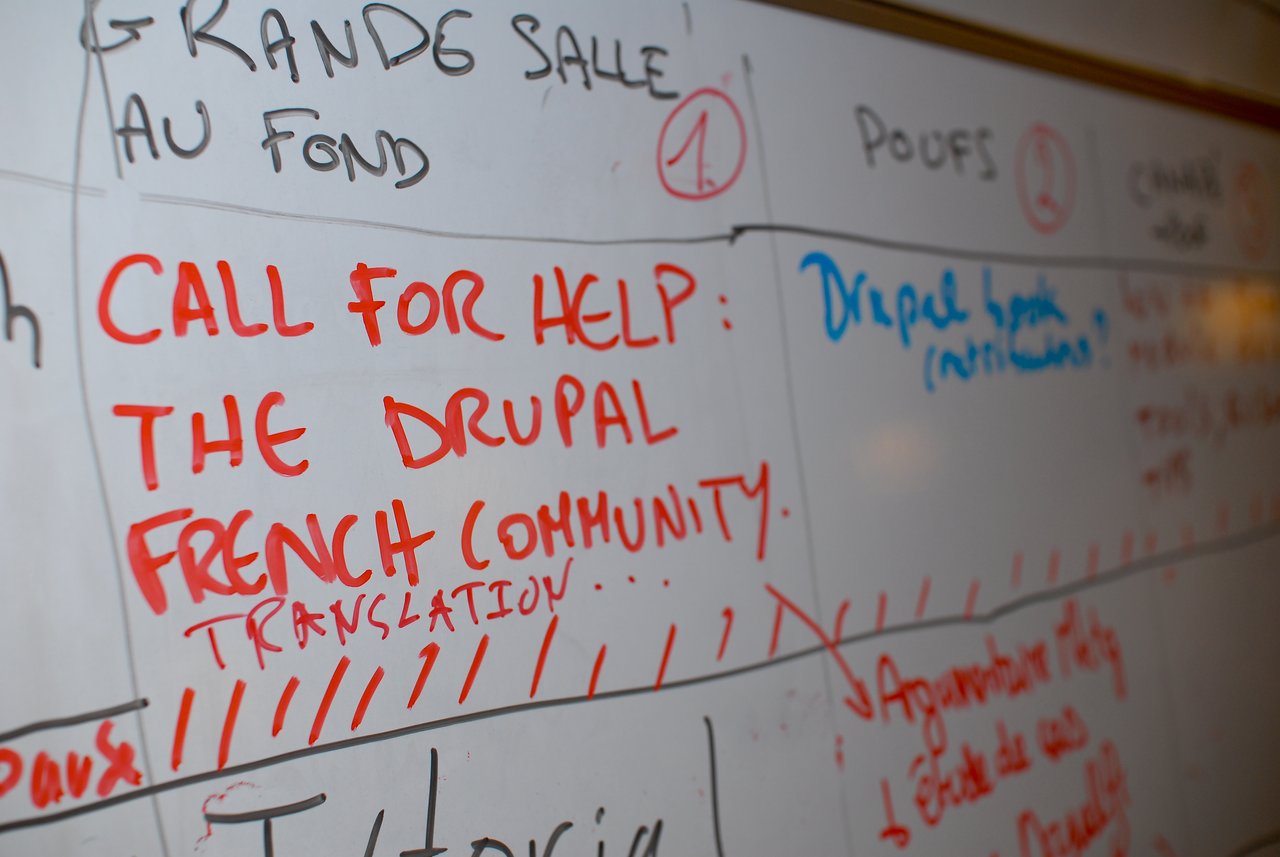 GRANDE SALLE
AU FOND
1.
POUFS
2
3
h
CALL FOR HELP:
THE DRUPAL
FRENCH COMMUNITY.
TRANSLATION...
Drupal book
contributors?
pause
Argumentaire
étude de cas
Tutorial